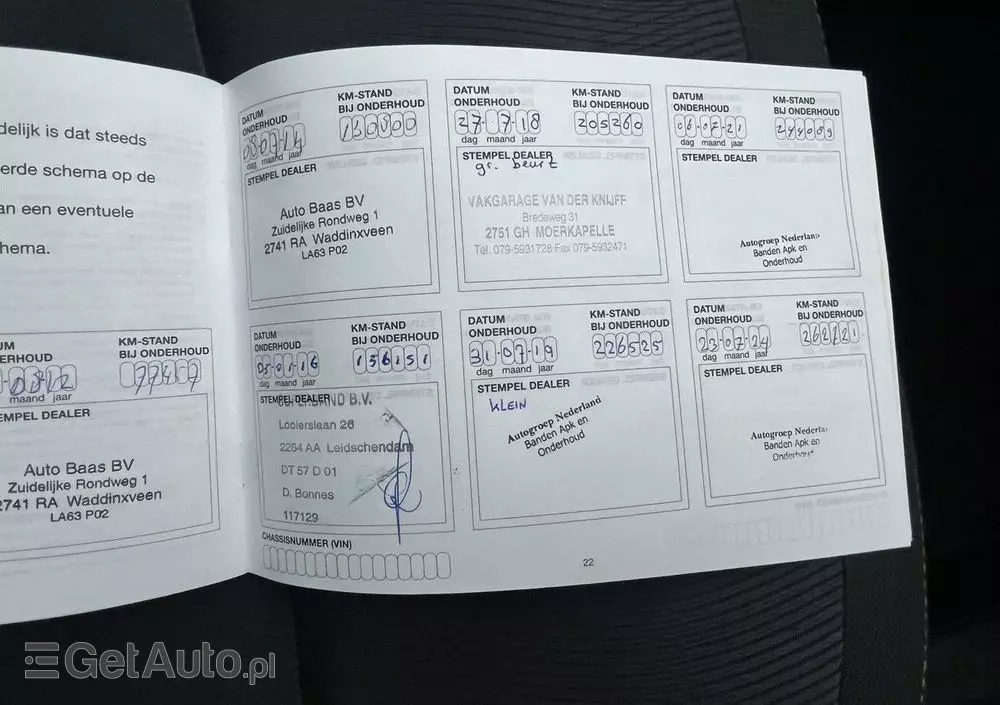 delijk is dat steeds
erde schema op de
an een eventuele
hema.
UM
ERHOUD
KM-STAND
BIJ ONDERHOUD
0812
77457
maand jaar
EMPEL DEALER
Auto Baas BV
Zuidelijke Rondweg 1
2741 RA Waddinxveen
LA63 P02
DATUM
ONDERHOUD
KM-STAND
BIJ ONDERHOUD
080714
130800
dag maand jaar
STEMPEL DEALER
Auto Baas BV
Zuidelijke Rondweg 1
2741 RA Waddinxveen
LA63 P02
DATUM
ONDERHOUD
KM-STAND
BIJ ONDERHOUD
27-7-18
205260
dag maand jaar
STEMPEL DEALER
gr. beurt
VAKGARAGE VAN DER KNIJFF
Bredeweg 31
2751 GH MOERKAPELLE
Tel. 079-5931728 Fax 079-5932471
DATUM
ONDERHOUD
KM-STAND
BIJ ONDERHOUD
06-07-21
244089
dag maand jaar
STEMPEL DEALER
Autogroep Nederland
Banden Apk en
Onderhoud
DATUM
ONDERHOUD
KM-STAND
BIJ ONDERHOUD
05-01-16
156151
dag maand jaar
STEMPEL DEALER
B.V.
Looierslaan 26
2264 AA Leidschendam
DT 57 D 01
D. Bonnes
117129
DATUM
ONDERHOUD
KM-STAND
BIJ ONDERHOUD
31-07-19
226525
dag maand jaar
STEMPEL DEALER
KLEIN
Autogroep Nederland
Banden Apk en
Onderhoud
DATUM
ONDERHOUD
KM-STAND
BIJ ONDERHOUD
23-07-24
262721
dag maand jaar
STEMPEL DEALER
Autogroep Nederla
Banden Apk en
Onderhoud
CHASSISNUMMER (VIN)
22
GetAuto.pl